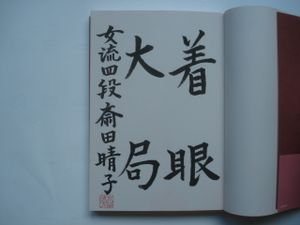 着眼
大局
女流四段斎田晴子